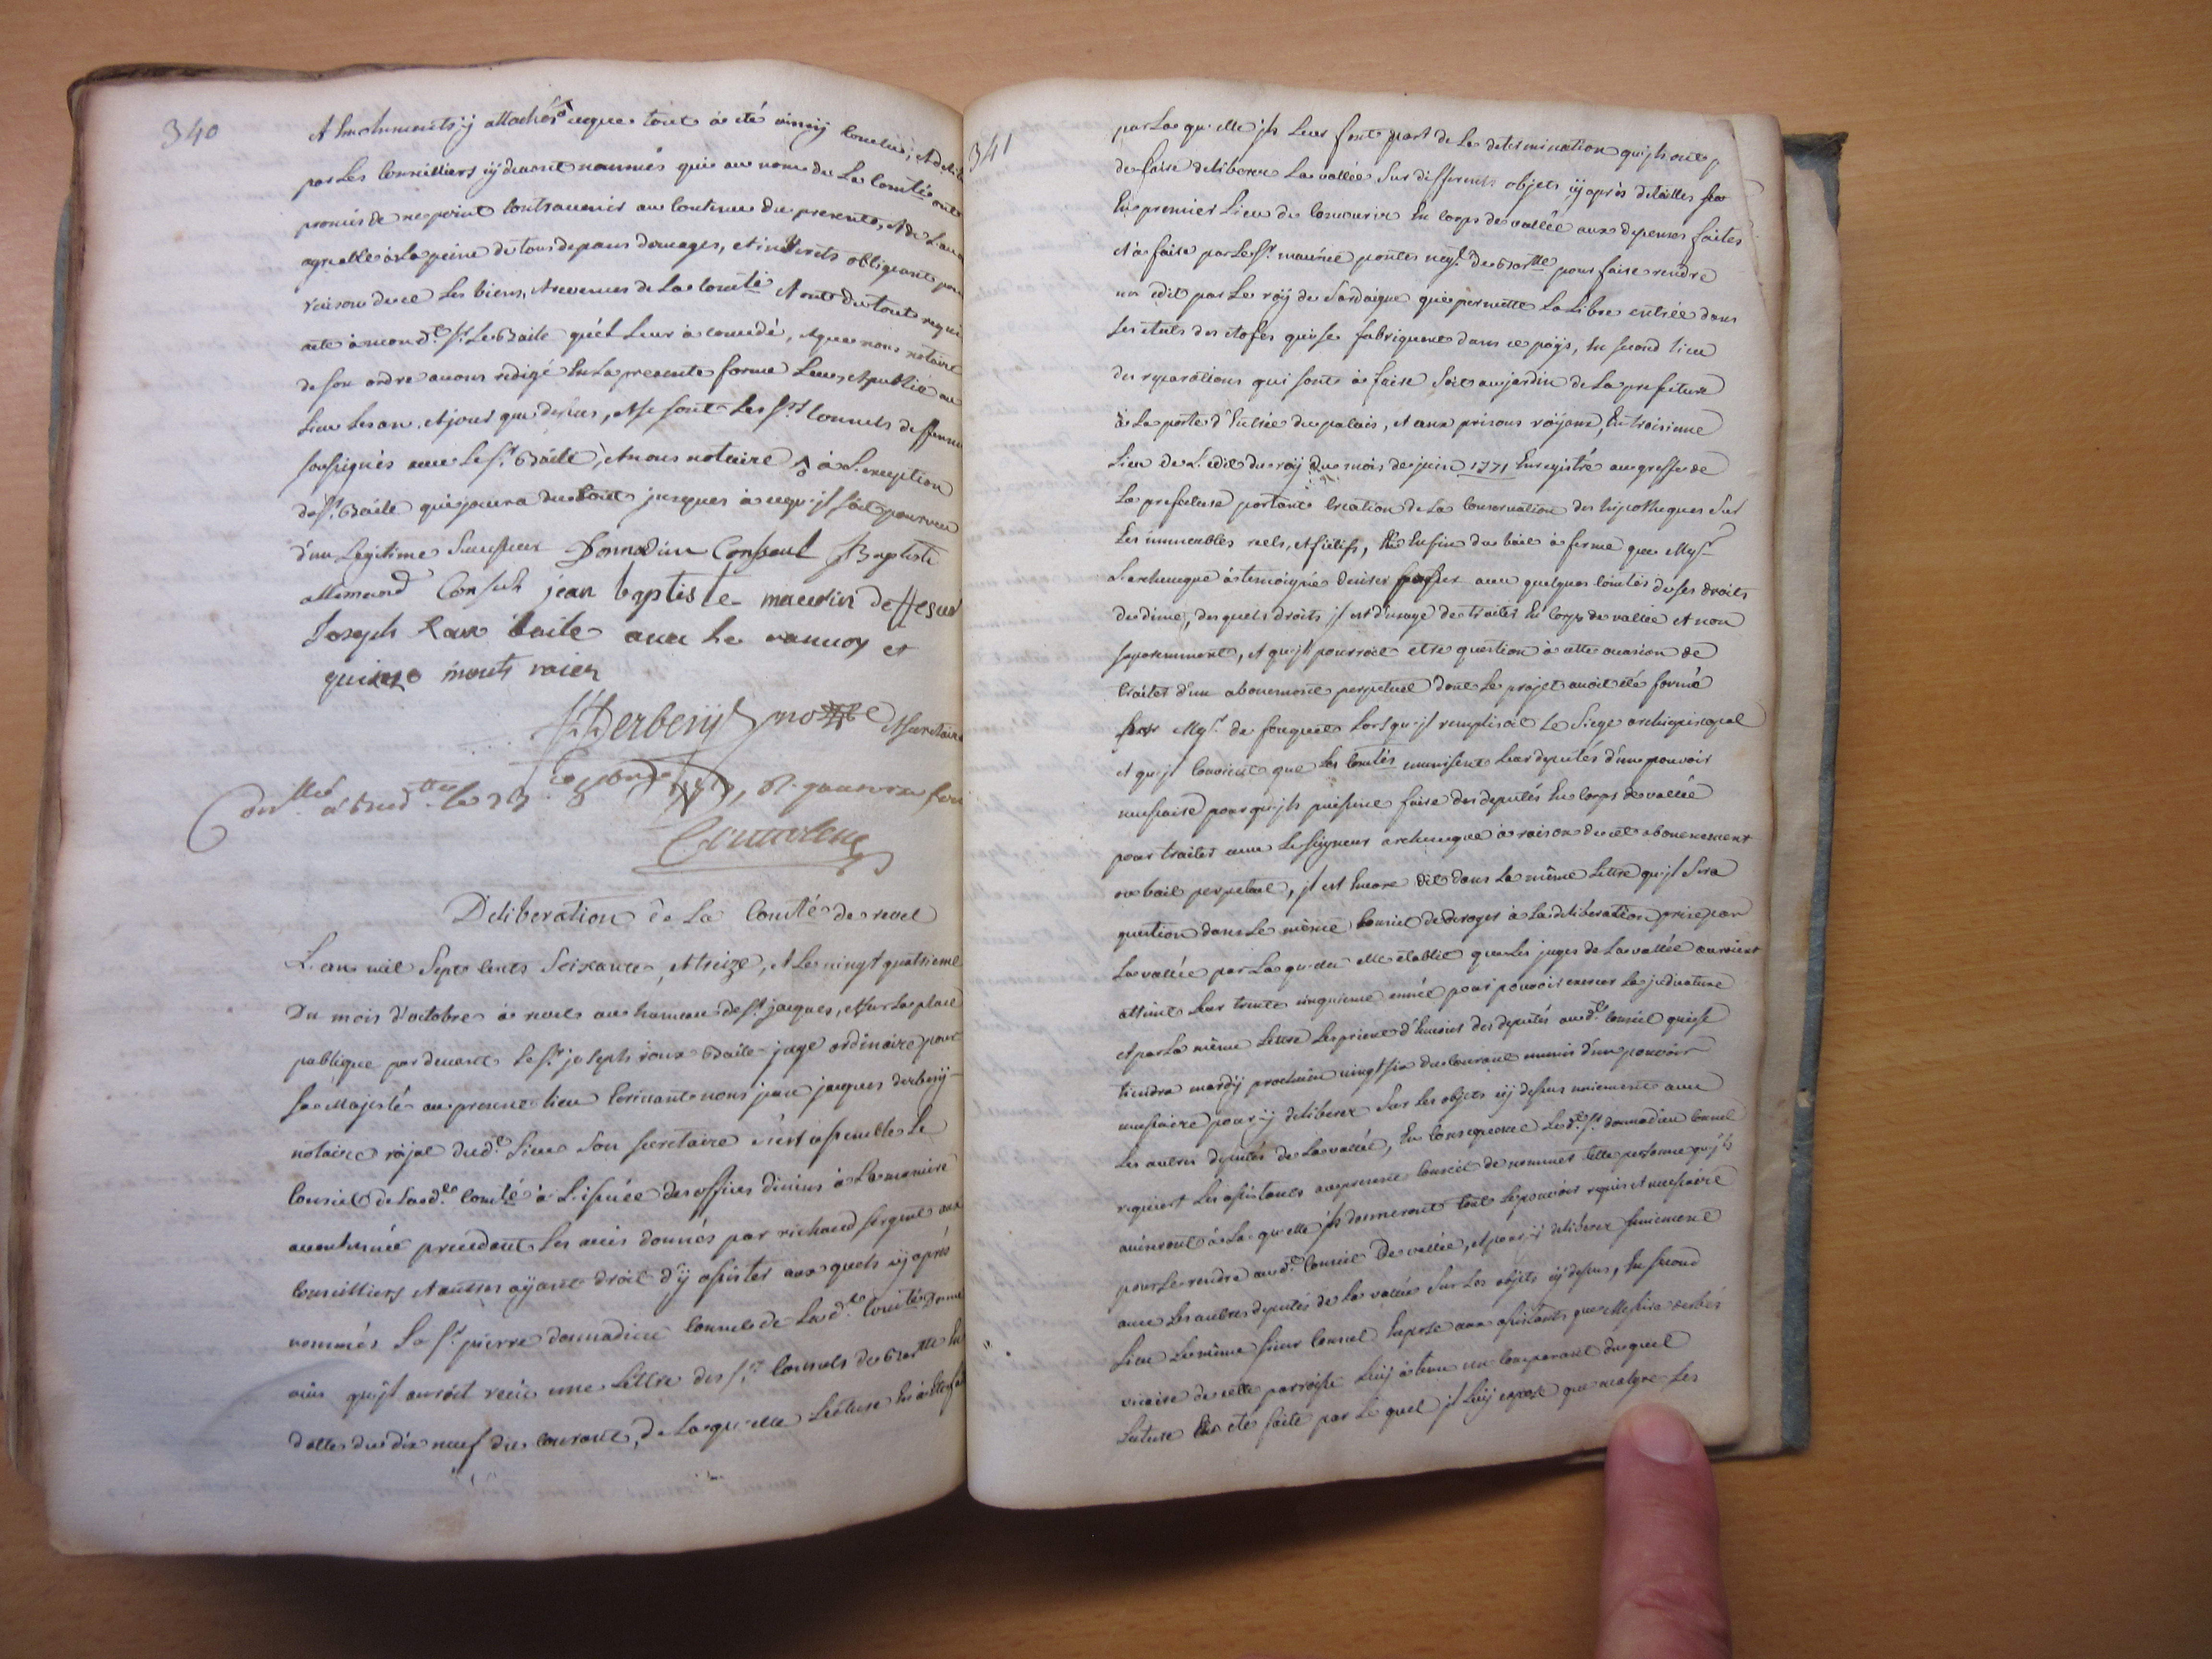 340
Emolumentsÿ attachés ceque tout à été ainsÿ conclu, et delib
par Les Conseilliers cÿ devant nommés qui au nom de La Comté. ont
promis de ne point Contrevenir au Contenu du presente, et de L'avoir
agreable à La peine de tous depans domages, et interets obligeant pour
raison de ce Les biens, et revenus de La Comté et ont du tout requis
acte à mond. Sr. Le Baile qu'il Leur à concedé, et que nous notaire
de son ordre avons redigé En La presente forme Lue, et publié au
Lieu Les an, et jour que dessus, et se sont Les Srs. Consuls de
soussignés avec Le Sr. Baile, et nous notaire à L'exception
du Sr. Baile qui jouira du tout jusques à ce qu'jl soit pourveu
d'un Legitime Successeur Donnadieu Consoul JBaptiste
allemand Consul jean baptiste maurin
Joseph Roux baile avec le
quinze mouts raies
Derbesÿ no.re et secretaire
Conlle. à le 23
Deliberation de La Comté de revel
L'an mil Sept Cents Soixante, et treize, et Le vingt quatrieme
Du mois d'octobre à revel au hameau de St. jacques, et sur La place
publique par devant Le Sr. joseph roux Baile juge ordinaire pour
Sa Majesté au present lieu Ecrivant nous jean jacques derbesÿ
notaire röjal dud. Lieu Son Secretaire s'est assemblé Le
Conseil de Lad. Comté à L'issuée des offices divins à La maniere
accoutumée precedent Les avis donnés par richaud sergent aux
Conseilliers et autres aÿant droit d'ÿ assister aux quels cÿ après
nommés Le Sr. pierre donnadieu Consul de Lad. Comté Donne
avis qu'jl auroit reçûe une Lettre des Srs. Consuls de Bar.tte En
datte du dix neuf du courant, de La qu'elle Lecture En à été
341
par La qu'elle jls Leur font part de La determination qu'jls ont
de faire deliberer La vallée Sur differents objets cÿ après detaillés
En premier Lieu de Concourir En Corps de vallée aux depenses faites
et à faire par Le Sr. maurice pontes neg.t de Bar.tte pour faire rendre
un edit par Le röy de Sardaigne qui permette La Libre entrée dans
Ses etats des etofes qui se fabriquent dans ce païs, En second Lieu
des reparations qui sont à faire Soit au jardin de La prefecture
à La porte d'Entrée du palais, et aux prisons röyaux, En troisieme
Lieu de L'edit du röy du mois de juin 1771 Enregistré au greffe de
La prefecture portant Creation de La Conservation des hipotheques Sur
Les immeubles réels, et fictifs, Enfin du bail à ferme que Mgr.
L'archeveque à temoigné desirer passer avec quelques Comtés de ses droits
de dime, des quels droits jl est d'usage de traiter En Corps de vallée et non
separemment, et qu'jl pourroit etre question à cette occasion de
traiter d'un abonnement perpetuel dont Le projet avoit été formé
par Mgr. de fouquet Lors qu'jl remplissait Le Siege archiepiscopal
et qu'jl Convient que Les Comtés munissent Leur deputés d'un pouvoir
necessaire pour qu'jls puissent faire des deputés En Corps de vallée
pour traiter avec Le Seigneur archeveque à raison de cet abonnement
ou bail perpetuel, jl est Encore dit dans La même Lettre qu'jl Sera
question dans Le même Conseil de deroger à La deliberation prise par
La vallée par La qu'elle Elle etablit que Les juges de La vallée auroient
atteint Leur trente cinquieme année pour pouvoir exercer La judicature
et par La même Lettre Les prient d'Envoier des deputés aud. Conseil qui se
tiendra mardÿ prochain vingt six du Courant munis d'un pouvoir
necessaire pour ÿ deliberer Sur Les objets cÿ dessus uniement avec
Les autres deputés de La vallée, En Consequence Led. Sr. donnadieu Consul
requiert Les assistants au present Conseil de nommer telle personne qu'jls
aviseront à La qu'elle jls donneront tout Le pouvoir requis et necessaire
pour Se rendre aud. Conseil De vallée, et pour ÿ deliberer uniement
avec Les autres deputés de La vallée Sur Les objets cÿ dessus, En second
Lieu Le même Sieur Consul Expose aux assistants que Messire
vicaire de cette parroisse Luÿ à tenu un Comparant du quel
Lecture En été faite par Le quel jl Luÿ expose que malgré Les